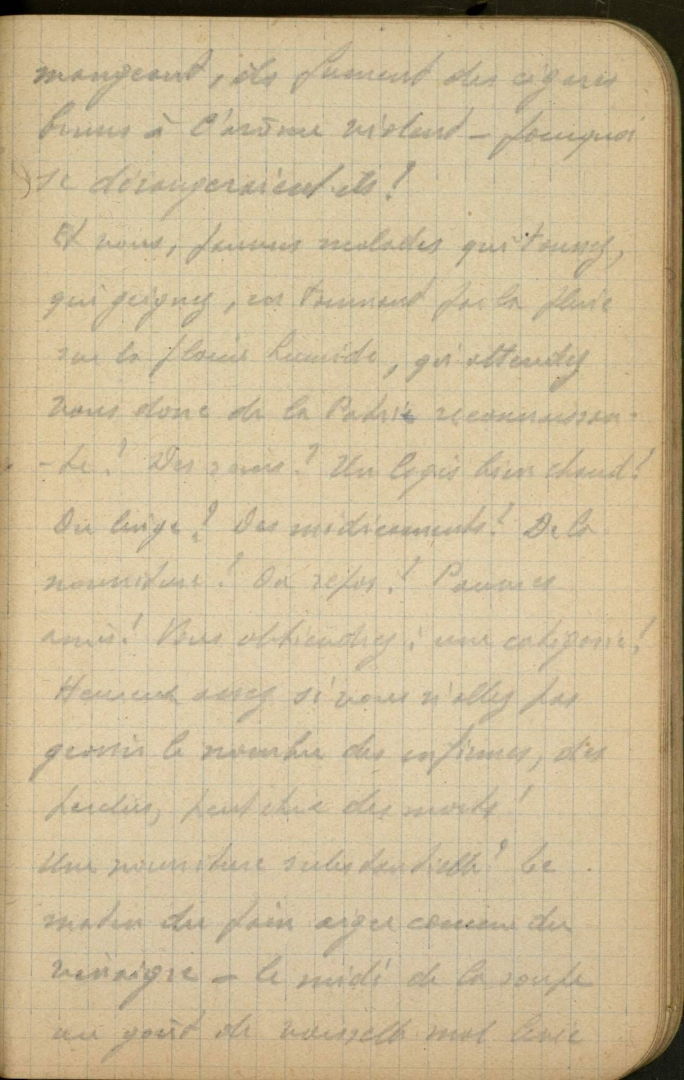 mangeant, ils fument des cigares
bruns à l'arôme violent – pourquoi
se dérangeraient-ils ?
Et vous, pauvres malades qui toussez,
qui geignez, en tournant par la pluie
sur la plaine humide, qu'attendez
vous donc de la Patrie reconnaissan-
-te ? Des soins ? Un logis bien chaud ?
Du linge ? Des médicaments ? De la
nourriture ? Du repos ? Pauvres
amis ! Vous obtiendrez : une catégorie !
Heureux assez si vous n'allez pas
grossir le nombre des infirmes, des
perdus, peut être des morts !
Une nourriture substantielle ? Le
matin du pain aigre comme du
vinaigre – le midi de la soupe
au goût de vaisselle mal lavée